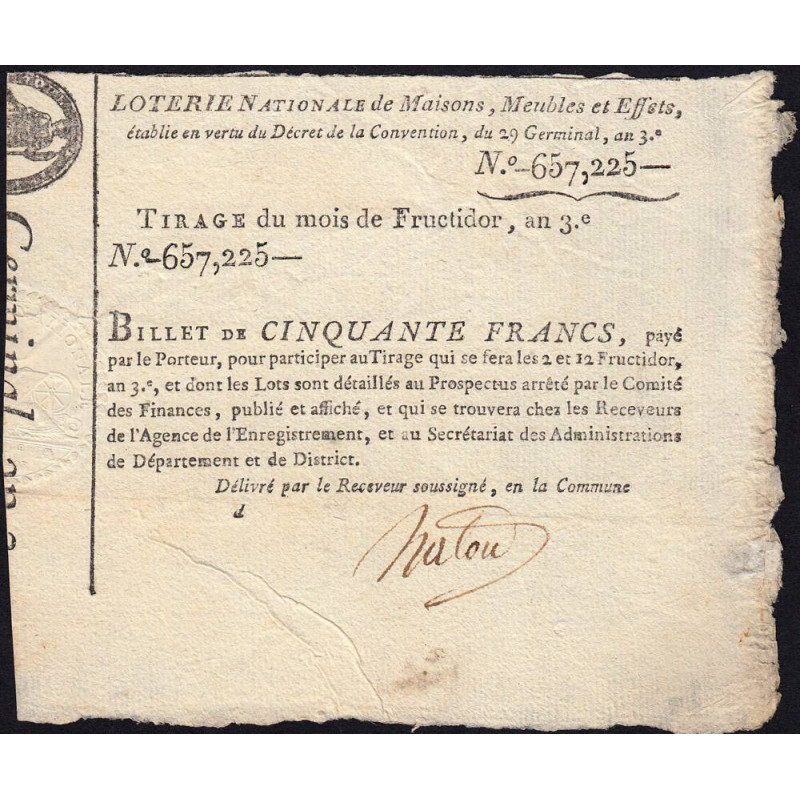 LOTERIE NATIONALE de Maisons, Meubles et Effets,
établie en vertu du Décret de la Convention, du 29 Germinal, an 3.e
N.o-657,225—
TIRAGE du mois de Fructidor, an 3.e
N.o-657,225—
BILLET DE CINQUANTE FRANCS, payé
par le Porteur, pour participer au Tirage qui se fera les 2 et 12 Fructidor,
an 3.e, et dont les Lots sont détaillés au Prospectus arrêté par le Comité
des Finances, publié et affiché, et qui se trouvera chez les Receveurs
de l'Agence de l'Enregistrement, et au Secrétariat des Administrations
de Département et de District.
Délivré par le Receveur soussigné, en la Commune
d